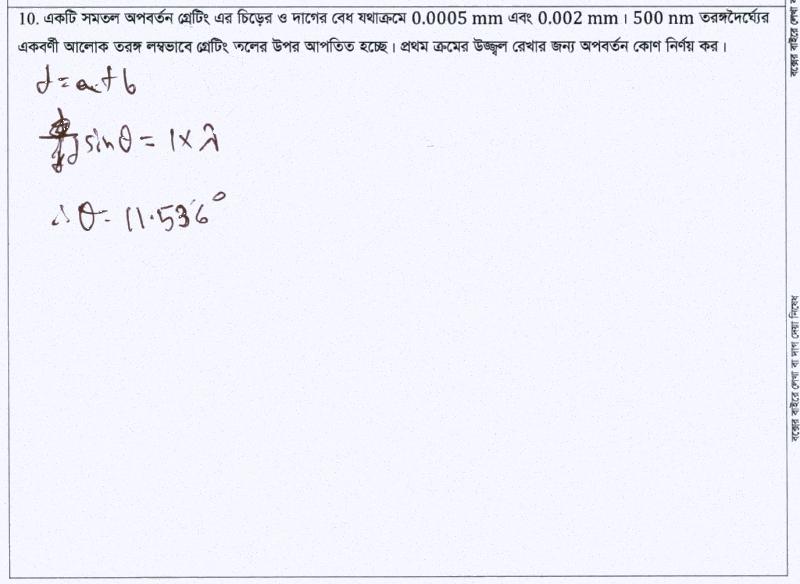 10. একটি সমতল অপবর্তন গ্রেটিং এর চিড়ের ও দাগের বেধ যথাক্রমে 0.0005 mm এবং 0.002 mm। 500 nm তরঙ্গদৈর্ঘ্যের
একবর্ণী আলোক তরঙ্গ লম্বভাবে গ্রেটিং তলের উপর আপতিত হচ্ছে। প্রথম ক্রমের উজ্জ্বল রেখার জন্য অপবর্তন কোণ নির্ণয় কর।
d = a + b
d sin θ = 1 × λ
∴ θ = 11.536°
বক্সের বাইরে লেখা বা দাগ দেয়া নিষেধ